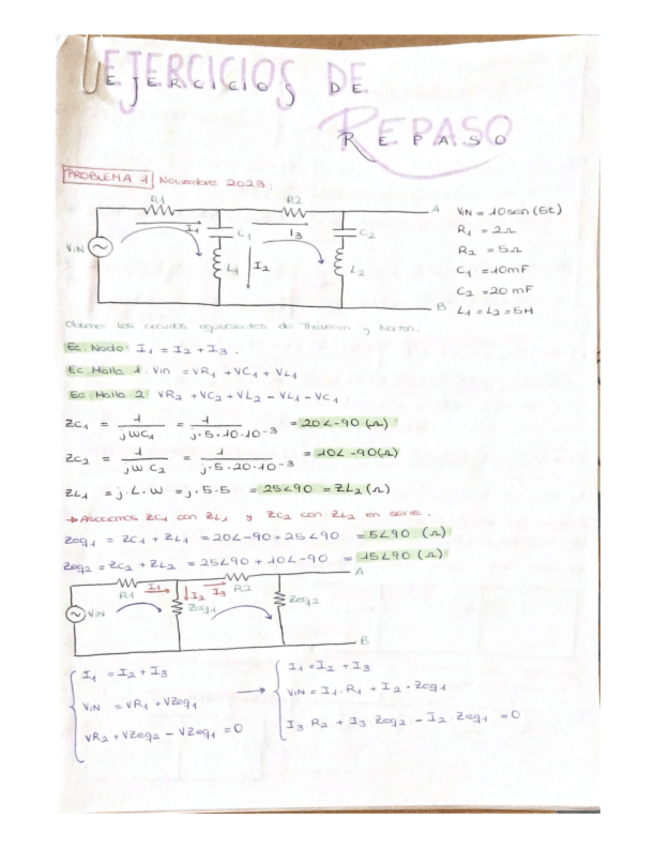 EJERCICIOS DE
REPASO
PROBLEMA 1 Noviembre 2023:
R1 R2
I1 C1 I3 C2 A
VIN L1 I2 L2
B
VIN = 10sen(5t)
R1 = 2Ω
R2 = 5Ω
C1 = 10mF
C2 = 20 mF
L1 = L2 = 5H
Obtener los circuitos equivalentes de Thévenin y Norton.
Ec. Nodo: I1 = I2 + I3.
Ec. Malla 1: Vin = VR1 + VC1 + VL1
Ec. Malla 2: VR2 + VC2 + VL2 - VL1 - VC1.
ZC1 = 1/jWC1 = 1/j·5·10·10^-3 = 20∠-90 (Ω)
ZC2 = 1/jW C2 = 1/j·5·20·10^-3 = 10∠-90(Ω)
ZL1 = j·L·W = j·5·5 = 25∠90 = ZL2(Ω)
→ Asociamos ZC1 con ZL1 y ZC2 con ZL2 en serie.
Zeq1 = ZC1 + ZL1 = 20∠-90 + 25∠90 = 5∠90 (Ω)
Zeq2 = ZC2 + ZL2 = 25∠90 + 10∠-90 = 15∠90 (Ω)
R1 I1 I2 I3 R2 A
VIN Zeq1 Zeq2
B
I1 = I2 + I3
VIN = VR1 + VZeq1
VR2 + VZeq2 - VZeq1 = 0
→
I1 = I2 + I3
VIN = I1·R1 + I2·Zeq1
I3 R2 + I3 Zeq2 - I2·Zeq1 = 0